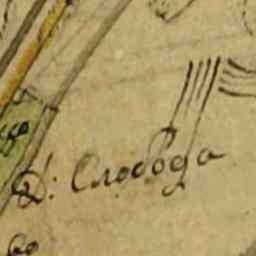 Д: Слобода